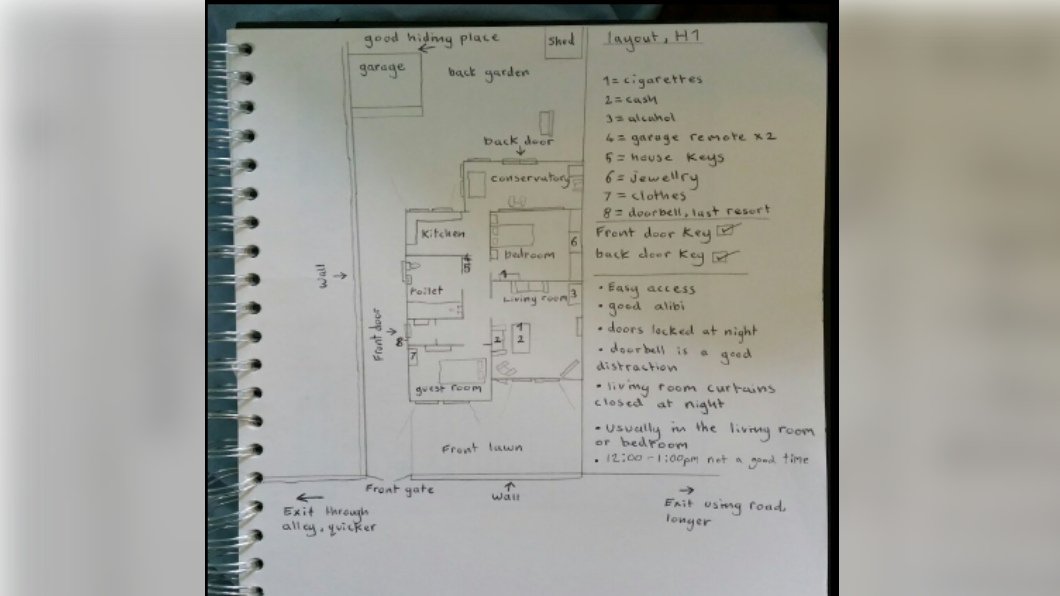 good hiding place
Shed
garage
back garden
back door
conservatory
Kitchen
bedroom
6
5
Toilet
Living room
3
1
2
2
Wall
Front door
8
7
guest room
Front lawn
Front gate
Wall
Exit through
alley, quicker
Exit using road,
longer
layout, H1
1 = cigarettes
2 = cash
3 = alcohol
4 = garage remote x2
5 = house keys
6 = jewellry
7 = clothes
8 = doorbell, last resort
Front door key
back door key
• Easy access
• good alibi
• doors locked at night
• doorbell is a good
distraction
• living room curtains
closed at night
• usually in the living room
or bedroom
• 12:00 - 1:00pm not a good time